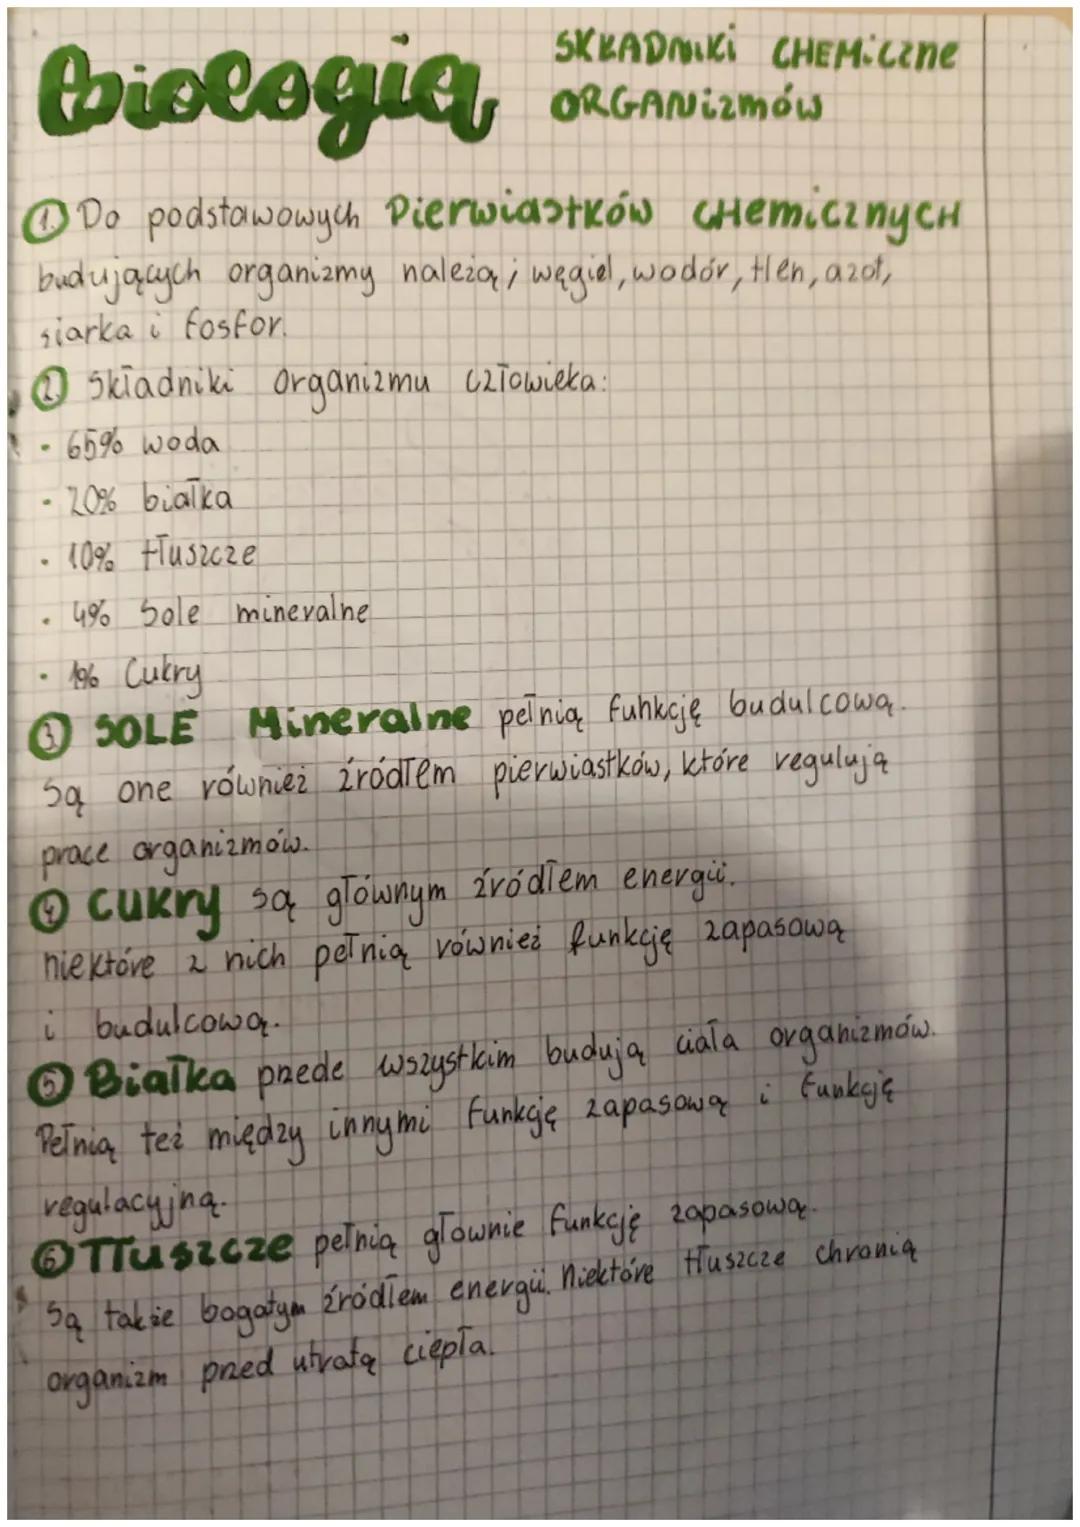 biologia
SKŁADNIKI CHEMiCZNE
ORGANiZMÓW
1. Do podstawowych Pierwiastków CHemicznycH
budujących organizmy należą; węgiel, wodór, tlen, azot,
siarka i fosfor.
2. Składniki organizmu człowieka:
• 65% woda
• 20% białka
• 10% tłuszcze
• 4% Sole mineralne
• 1% Cukry
3 SOLE Mineralne pełnią funkcję budulcową.
Są one również źródłem pierwiastków, które regulują
prace organizmów.
4 Cukry są głównym źródłem energii.
niektóre z nich pełnią również funkcję zapasową
i budulcową.
5 Białka przede wszystkim budują ciała organizmów.
Pełnią też między innymi funkcję zapasową i funkcję
regulacyjną.
6 Tłuszcze pełnią głownie funkcję zapasową.
Są także bogatym źródłem energii. Niektóre tłuszcze chronią
organizm przed utratą ciepła.